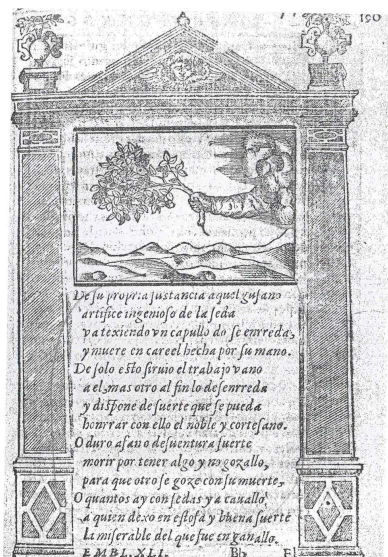 150
De su propria sustancia aquel gusano
artifice ingenioso de la seda
va texiendo vn capullo do se enrreda,
y muere en carcel hecha por su mano.
De solo esto siruio el trabajo vano
a el, mas otro al fin lo desenrreda
y dispone de suerte que se pueda
honrrar con ello el noble y cortesano.
O duro afan o desuentura fuerte
morir por tener algo y no gozallo,
para que otro se goze con su muerte,
O quantos ay con sedas y a cauallo,
a quien dexo en estofa y buena suerte
La miserable del que fue en ganallo.
EMBL. XLI. Bb